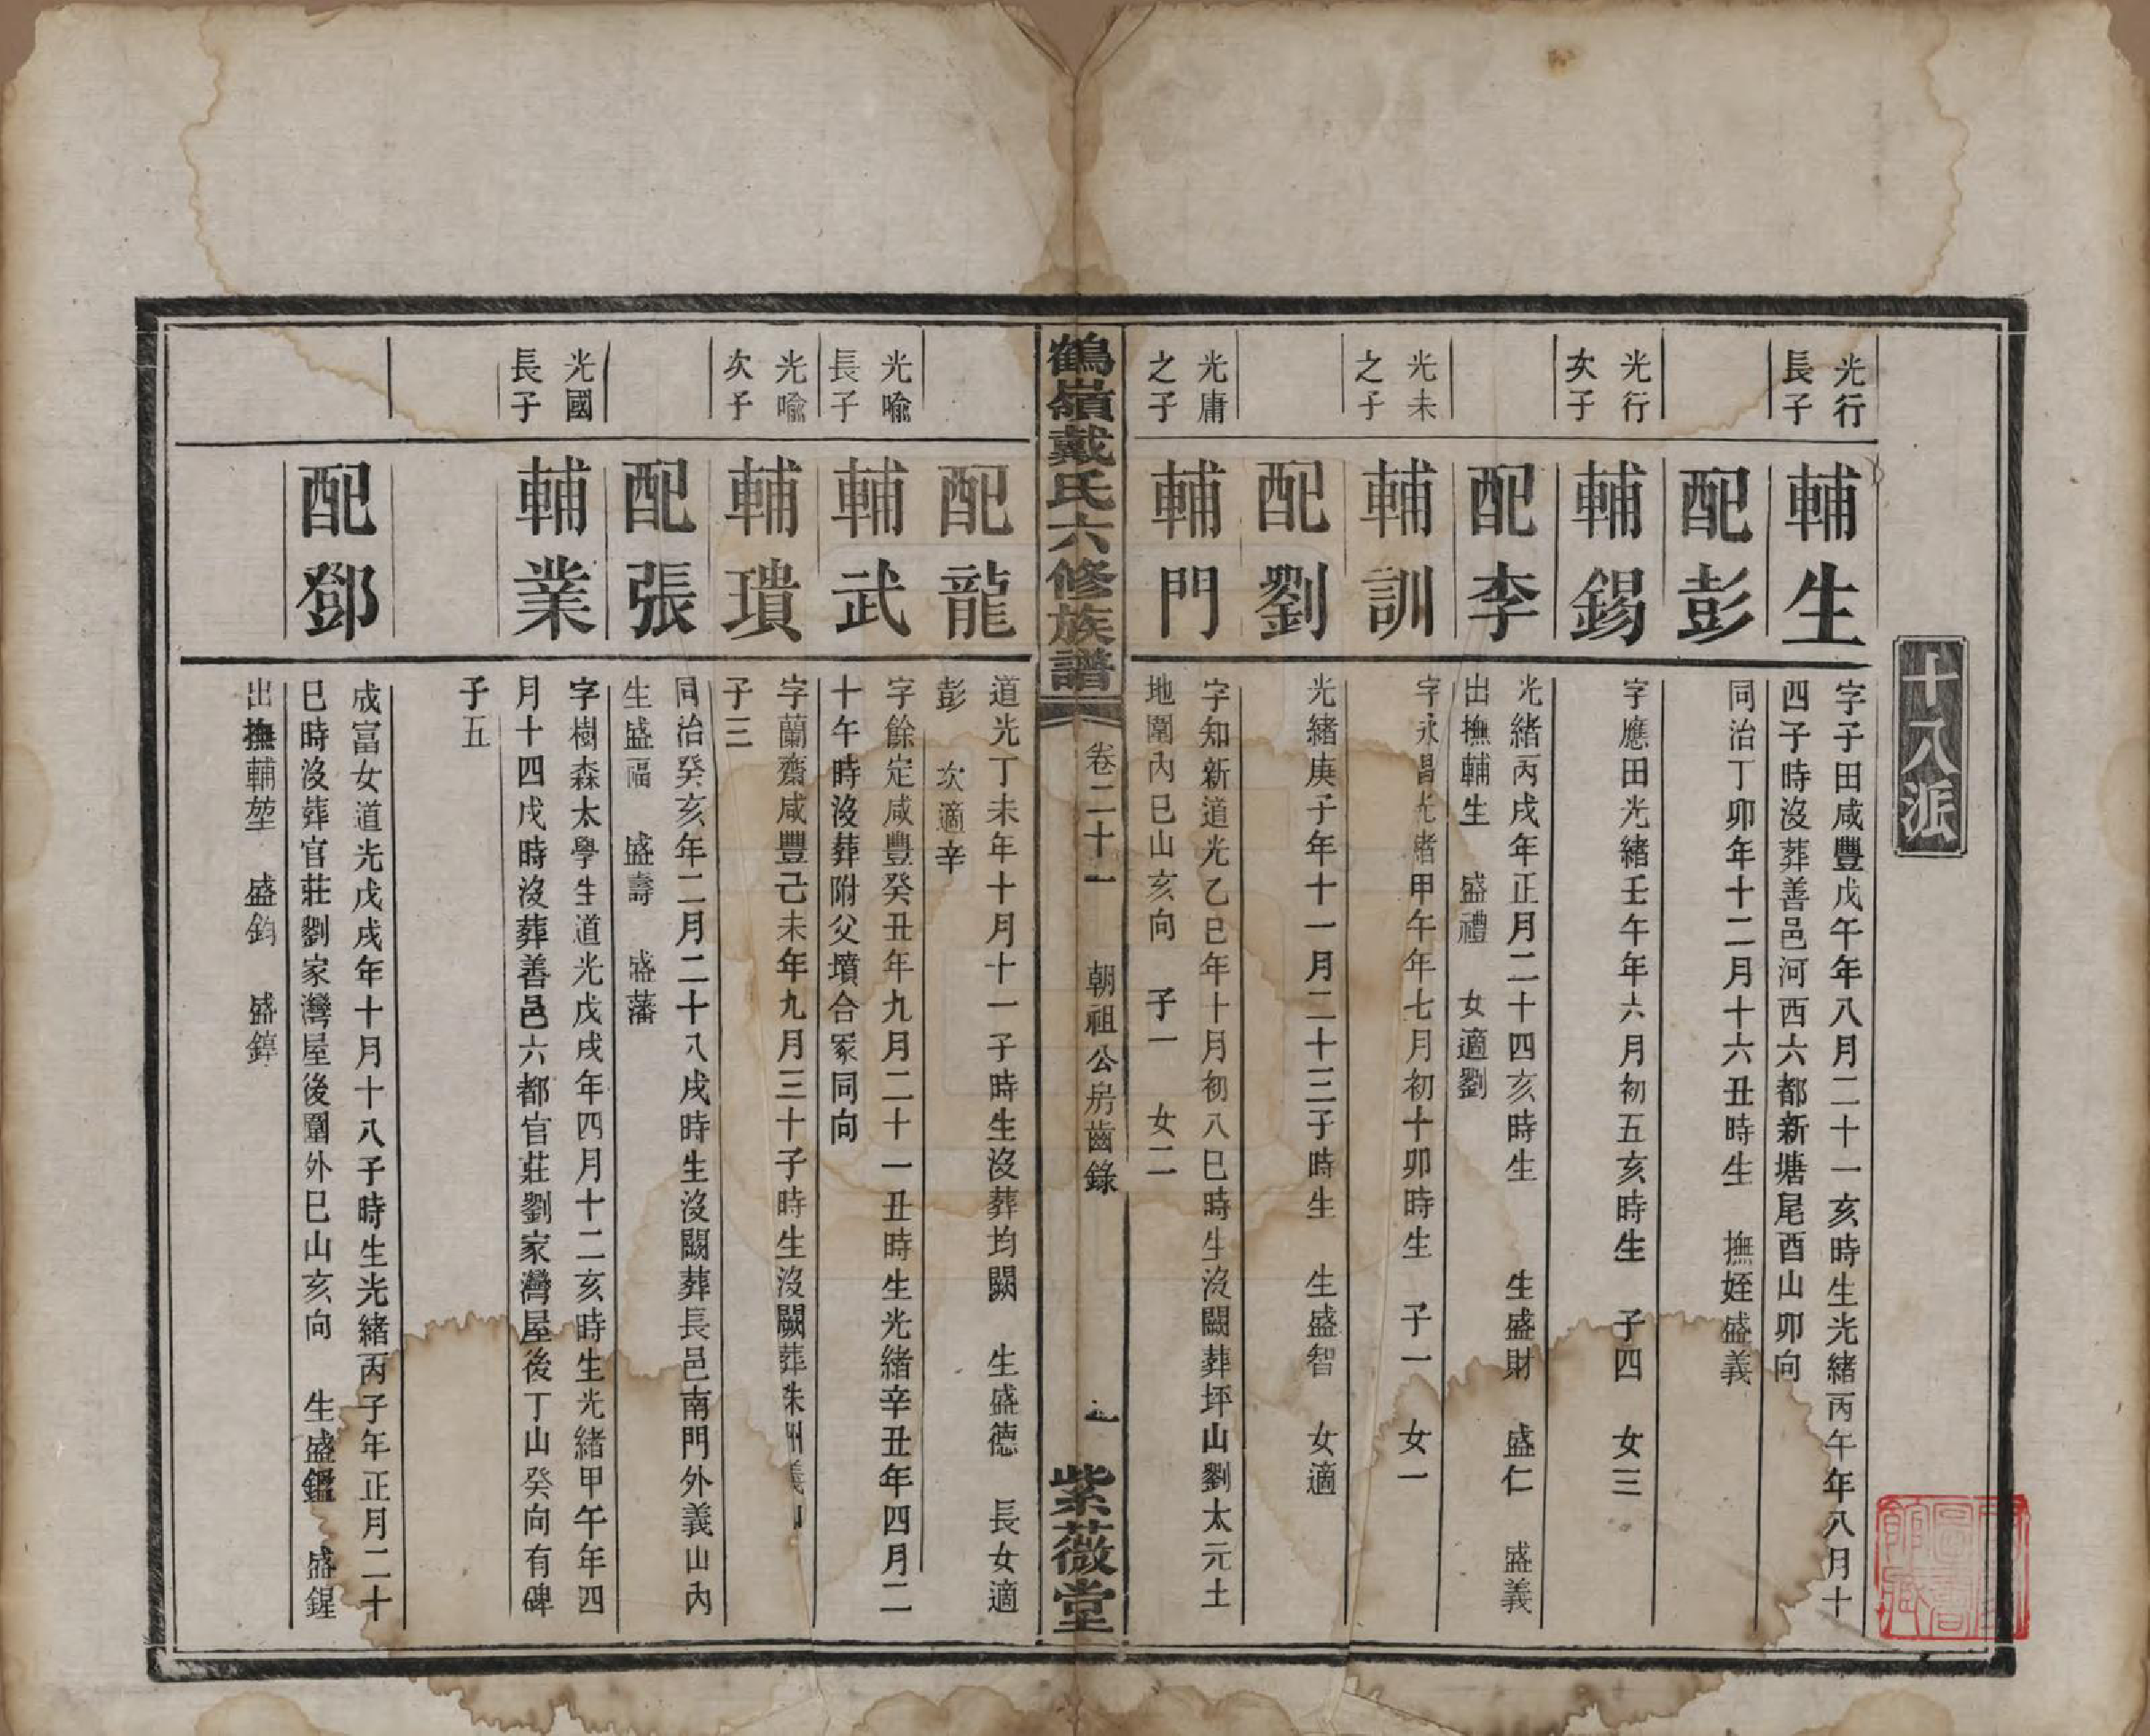 十八派
光行
長子
輔生
字子田咸豐戊午年八月二十一亥時生光緒丙午年八月十
四子時沒葬善邑河西六都新塘尾酉山卯向
配彭
同治丁卯年十二月十六丑時生 撫姪盛義
光行
次子
輔錫
字應田光緒壬午年六月初五亥時生 子四 女三
配李
光緒丙戌年正月二十四亥時生 生盛財 盛仁 盛義
出撫輔生 盛禮 女適劉
光未
之子
輔訓
字永昌光緒甲午年七月初十卯時生 子一 女一
配劉
光緒庚子年十一月二十三子時生 生盛智 女適
光庸
之子
輔門
字知新道光乙巳年十月初八巳時生沒闕葬坪山劉太元土
地圍內巳山亥向 子一 女二
鶴嶺戴氏六修族譜
卷二十一 朝祖公房齒錄
紫薇堂
配龍
道光丁未年十月十一子時生沒葬均闕 生盛德 長女適
彭 次適辛
光喩
長子
輔武
字餘定咸豐癸丑年九月二十一丑時生光緒辛丑年四月二
十午時沒葬附父墳合冢同向
光喩
次子
輔瓆
字蘭齋咸豐己未年九月三十子時生沒闕葬株洲義山
子三
配張
同治癸亥年二月二十八戌時生沒闕葬長邑南門外義山內
生盛福 盛壽 盛藩
光國
長子
輔業
字樹森太學生道光戊戌年四月十二亥時生光緒甲午年四
月十四戌時沒葬善邑六都官莊劉家灣屋後丁山癸向有碑
子五
配鄧
成富女道光戊戌年十月十八子時生光緒丙子年正月二十
巳時沒葬官莊劉家灣屋後圍外巳山亥向 生盛鑑 盛鍟
出撫輔堃 盛鈞 盛錞